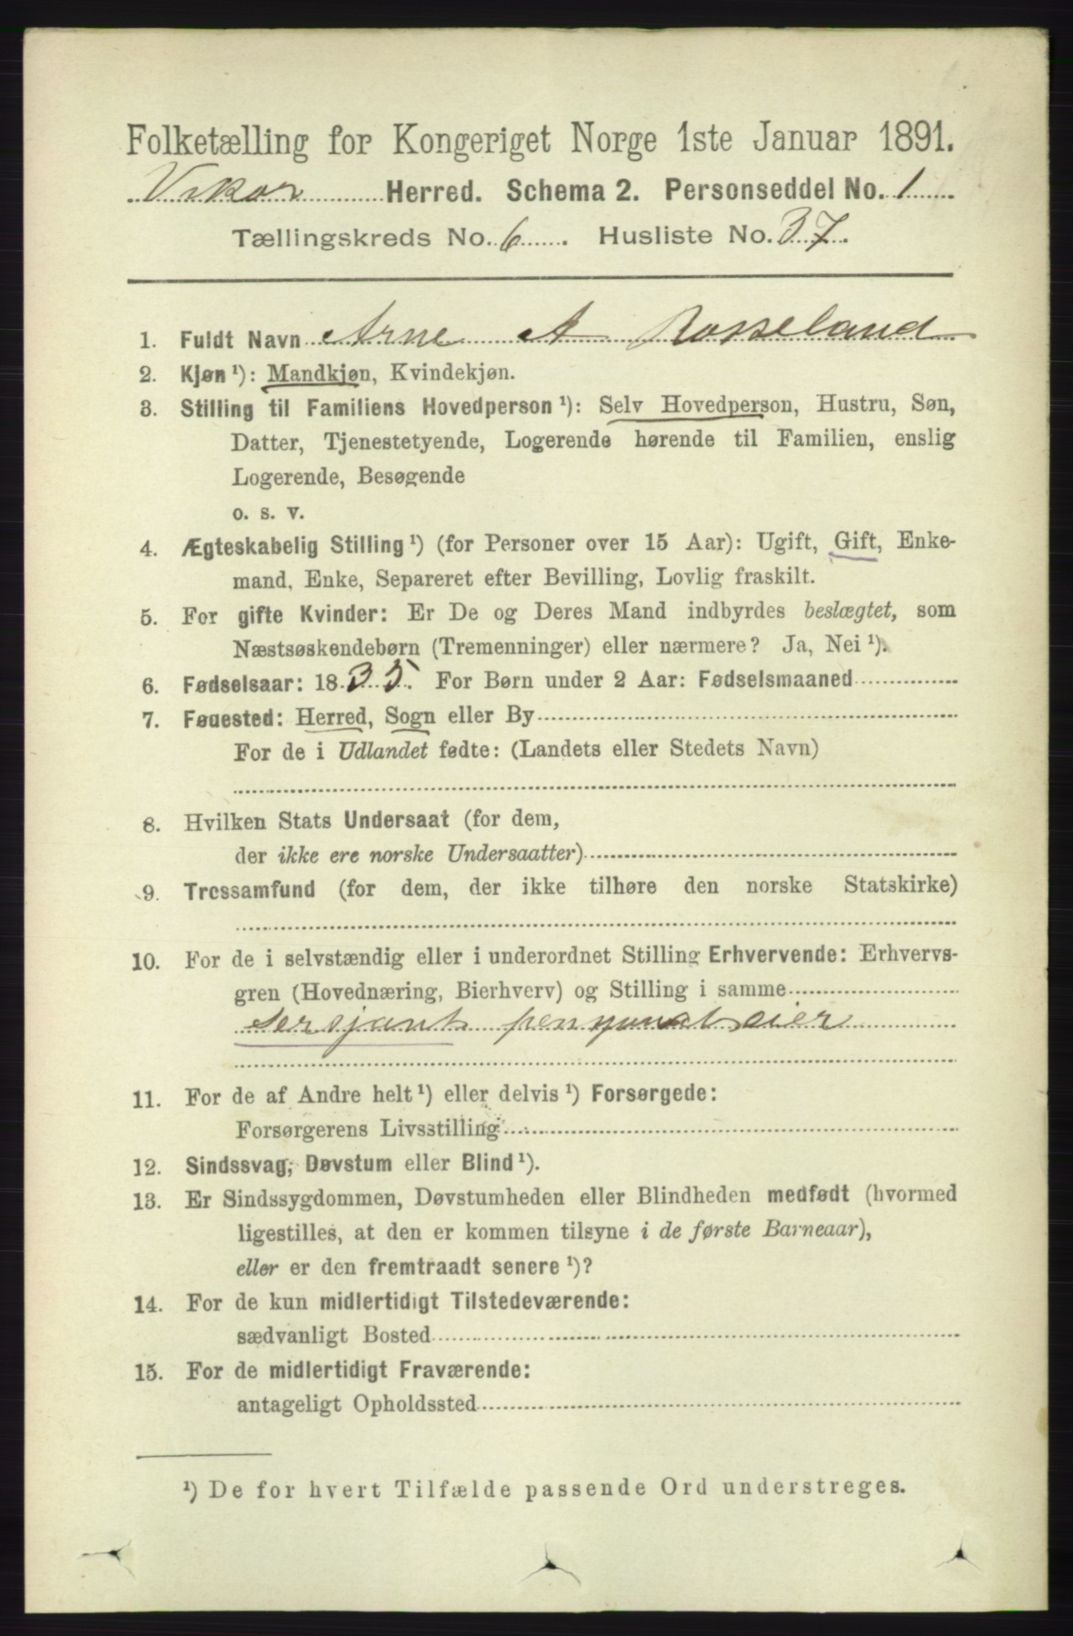 Folketælling for Kongeriget Norge 1ste Januar 1891.
Vikør Herred. Schema 2. Personseddel No. 1
Tællingskreds No. 6. Husliste No. 37.
1. Fuldt Navn Arne A Rosseland
2. Kjøn ¹): Mandkjøn, Kvindekjøn.
3. Stilling til Familiens Hovedperson ¹): Selv Hovedperson, Hustru, Søn,
Datter, Tjenestetyende, Logerende hørende til Familien, enslig
Logerende, Besøgende
o. s. v.
4. Ægteskabelig Stilling ¹) (for Personer over 15 Aar): Ugift, Gift, Enke-
mand, Enke, Separeret efter Bevilling, Lovlig fraskilt.
5. For gifte Kvinder: Er De og Deres Mand indbyrdes beslægtet, som
Næstsøskendebørn (Tremenninger) eller nærmere? Ja, Nei ¹).
6. Fødselsaar: 1835. For Børn under 2 Aar: Fødselsmaaned
7. Føuested: Herred, Sogn eller By
For de i Udlandet fødte: (Landets eller Stedets Navn)
8. Hvilken Stats Undersaat (for dem,
der ikke ere norske Undersaatter)
9. Trossamfund (for dem, der ikke tilhøre den norske Statskirke)
10. For de i selvstændig eller i underordnet Stilling Erhvervende: Erhvervs-
gren (Hovednæring, Bierhverv) og Stilling i samme
Sersjant
11. For de af Andre helt ¹) eller delvis ¹) Forsørgede:
Forsørgerens Livsstilling
12. Sindssvag, Døvstum eller Blind ¹).
13. Er Sindssygdommen, Døvstumheden eller Blindheden medfødt (hvormed
ligestilles, at den er kommen tilsyne i de første Barneaar),
eller er den fremtraadt senere ¹)?
14. For de kun midlertidigt Tilstedeværende:
sædvanligt Bosted
15. For de midlertidigt Fraværende:
antageligt Opholdssted
¹) De for hvert Tilfælde passende Ord understreges.